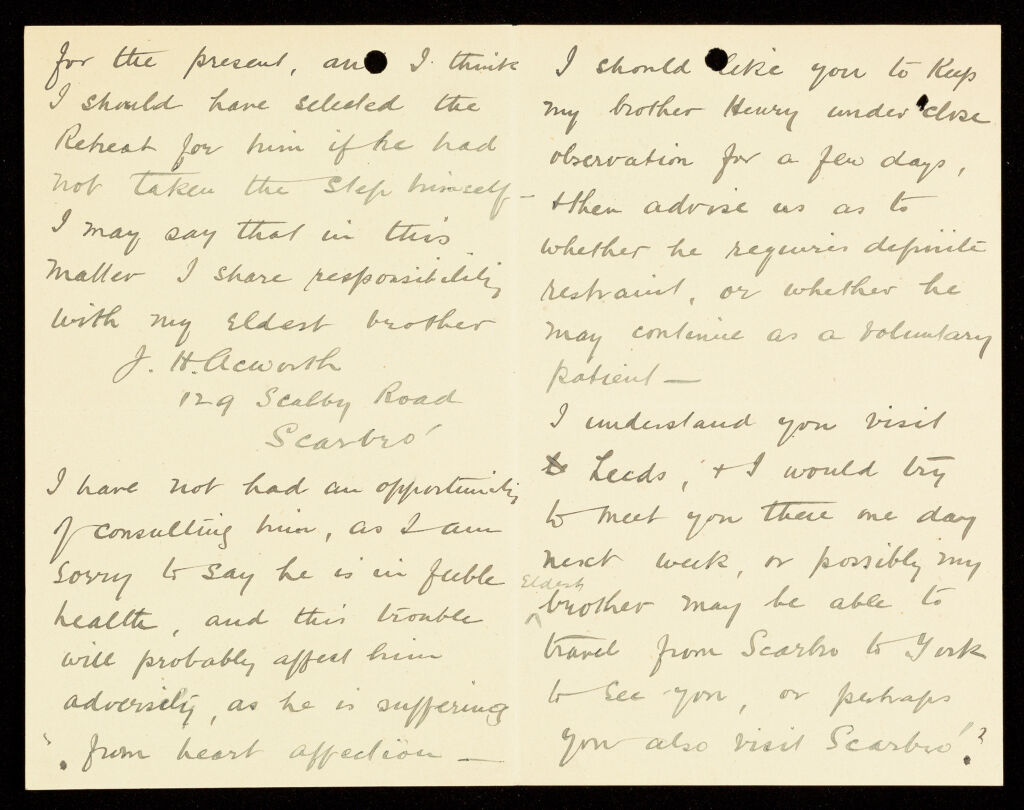 for the present, and I think
I should have selected the
Retreat for him if he had
not taken the step himself —
I may say that in this
matter I share responsibility
with my eldest brother
J. H. Acworth
129 Scalby Road
Scarbro'
I have not had an opportunity
of consulting him, as I am
sorry to say he is in feeble
health, and this trouble
will probably affect him
adversely, as he is suffering
from heart affection —
I should like you to keep
my brother Henry under close
observation for a few days,
+ then advise us as to
whether he requires definite
restraint, or whether he
may continue as a voluntary
patient —
I understand you visit
Leeds, + I would try
to meet you there one day
next week, or possibly my
Eldest
brother may be able to
travel from Scarbro to York
to see you, or perhaps
you also visit Scarbro'?